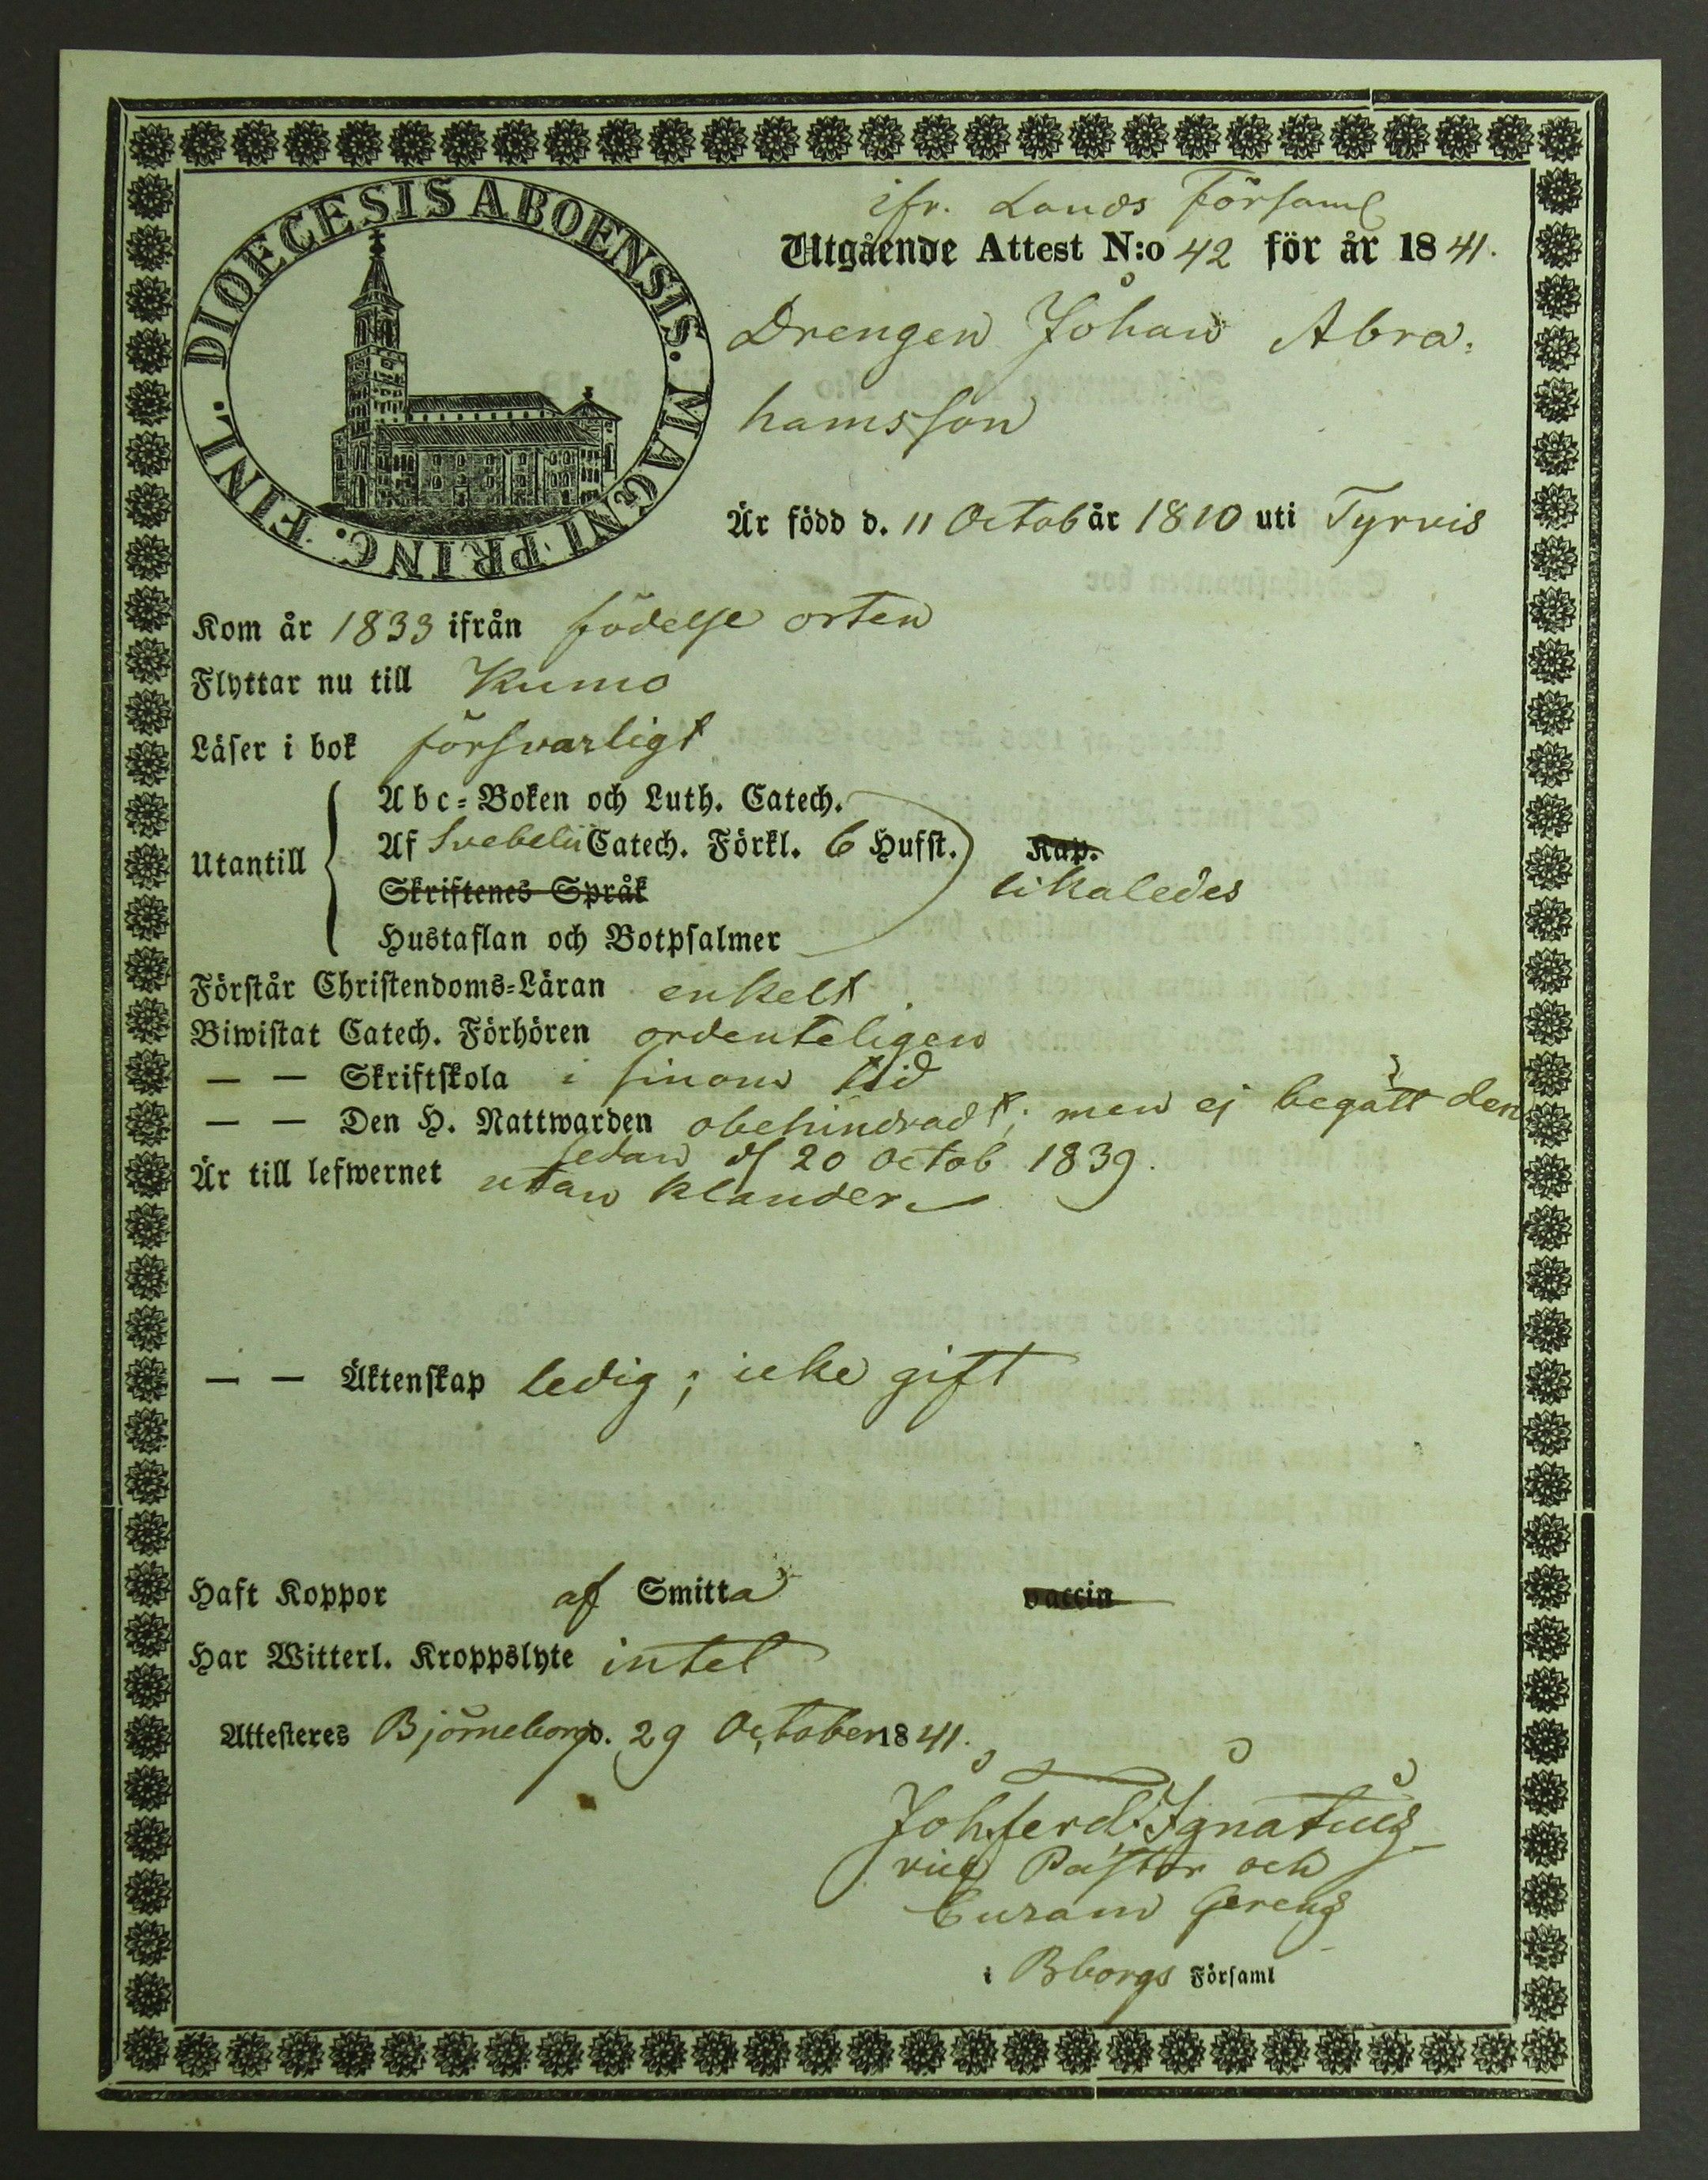 DIOECESIS ABOENSIS. MAGNI PRINC. FINL.
ifr. Lands Församl
Utgående Attest N:o 42 för år 1841.
Drengen Johan Abra-
hamsson
Är född d. 11 Octob år 1810 uti Tyrvis
Kom år 1833 ifrån födelse orten
Flyttar nu till Kumo
Läser i bok försvarligt
Utantill
Abc-Boken och Luth. Catech.
Af Svebelii Catech. Förkl. 6 Hufst. Kap.
Skriftenes Språk likaledes
Hustaflan och Botpsalmer
Förstår Christendoms-Läran enkelt.
Biwistat Catech. Förhören ordenteligen
— — Skriftskola i sinom tid
— — Den H. Nattwarden obehindradt; men ej begått den
sedan d 20 Octob 1839.
Är till lefwernet utan klander
— — Äktenskap ledig; icke gift
Haft Koppor af Smitta vaccin
Har Witterl. Kroppslyte intet
Attesteres Björneborg d. 29 October 1841.
Joh. Ferd. Ignatius
vice Pastor och
Curam Gerens
i Bborgs Församl